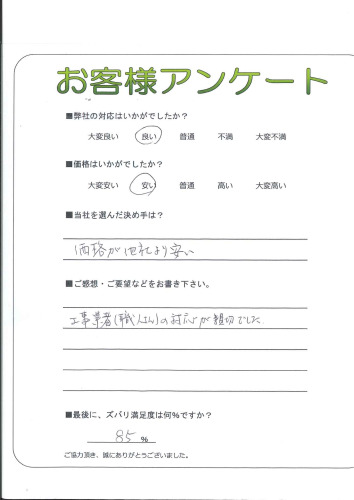 お客様アンケート
■弊社の対応はいかがでしたか？
大変良い 良い 普通 不満 大変不満
■価格はいかがでしたか？
大変安い 安い 普通 高い 大変高い
■当社を選んだ決め手は？
価格が他社より安い
■ご感想・ご要望などをお書き下さい。
工事業者(職人さん)の対応が親切でした
■最後に、ズバリ満足度は何％ですか？
85 ％
ご協力頂き、誠にありがとうございました。